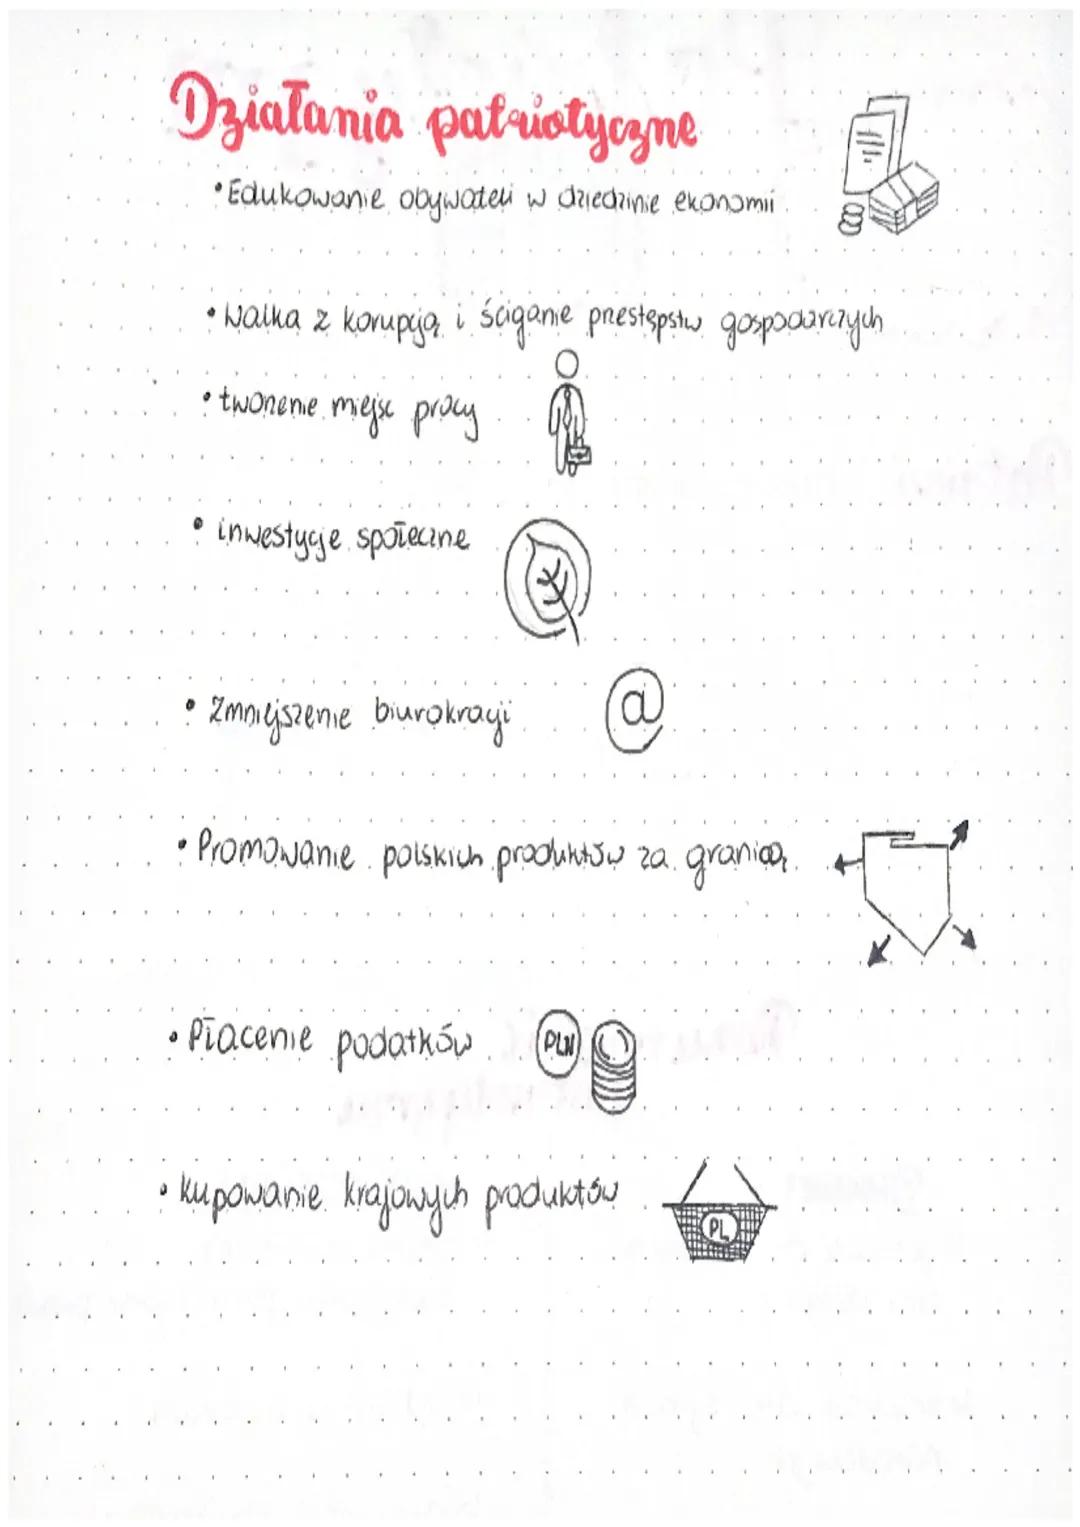 Działania patriotyczne
• Edukowanie obywateli w dziedzinie ekonomii
• Walka z korupcją i ściganie przestępstw gospodarczych
• tworzenie miejsc pracy
• inwestycje społeczne
• Zmniejszenie biurokracji
@
• Promowanie polskich produktów za granicą
• Płacenie podatków
PLN
• Kupowanie krajowych produktów
PL